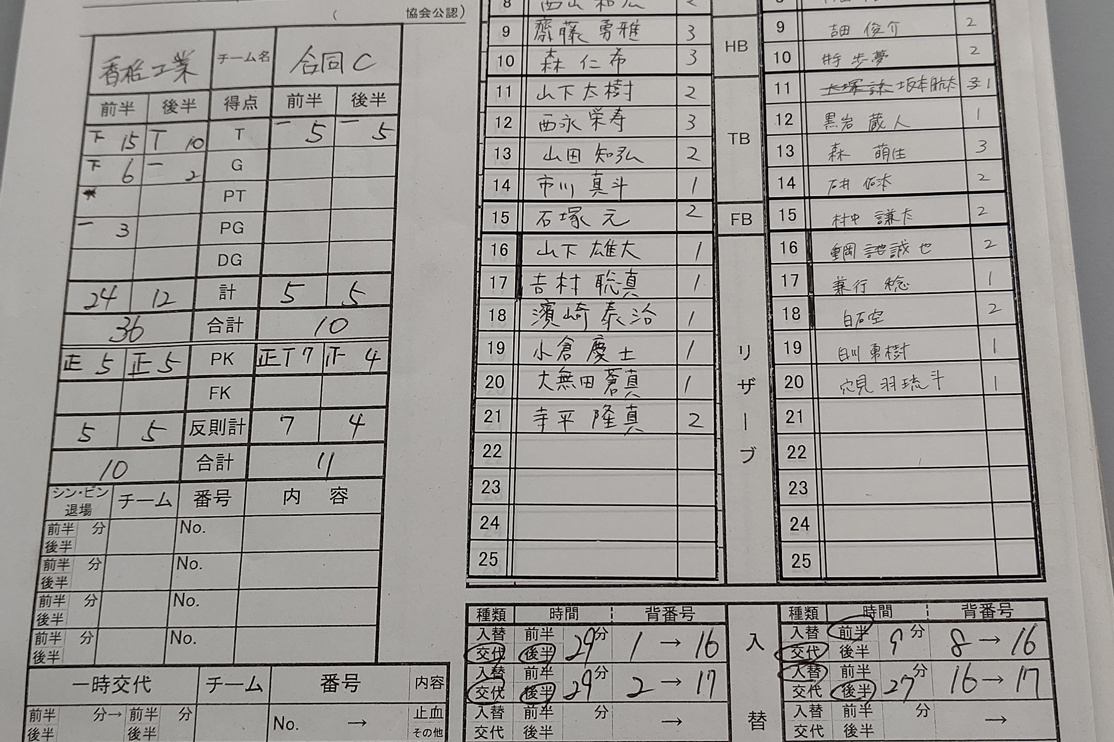 ( 協会公認)
香椎工業 チーム名 合同C
前半 後半 得点 前半 後半
T 15 T 10 T 一 5 一 5
T 6 一 2 G
PT
一 3 PG
DG
24 12 計 5 5
36 合計 10
正 5 正 5 PK 正T 7 正 4
FK
5 5 反則計 7 4
10 合計 11
シン・ビン 退場 チーム 番号 内 容
前半 分 No.
後半
前半 分 No.
後半
前半 分 No.
後半
前半 分 No.
後半
一時交代 チーム 番号 内容
前半 分→ 前半 分 No. → 止血
後半 後半 その他
8 西山 2
9 齋藤 勇雅 3
10 森 仁希 3
11 山下 大樹 2
12 西永 栄寿 3
13 山田 知弘 2
14 市川 真斗 1
15 石塚 元 2
16 山下 雄大 1
17 吉村 聡真 1
18 濱崎 泰治 1
19 小倉 慶士 1
20 大無田 蒼真 1
21 寺平 隆真 2
22
23
24
25
HB
TB
FB
リザーブ
9 吉田 俊介 2
10 歩夢 2
11 坂本 1
12 黒岩 蔵人 1
13 森 萌生 3
14 石井 2
15 村中 謙太 2
16 誠也 2
17 兼行 稔 1
18 白石空 2
19 白川 勇樹 1
20 穴見 羽琉斗 1
21
22
23
24
25
種類 時間 背番号
入替 前半 29分 1 → 16
交代 後半
入替 前半 29分 2 → 17
交代 後半
入替 前半 分 →
交代 後半
入替
種類 時間 背番号
入替 前半 9分 8 → 16
交代 後半
入替 前半 27分 16 → 17
交代 後半
入替 前半 分 →
交代 後半